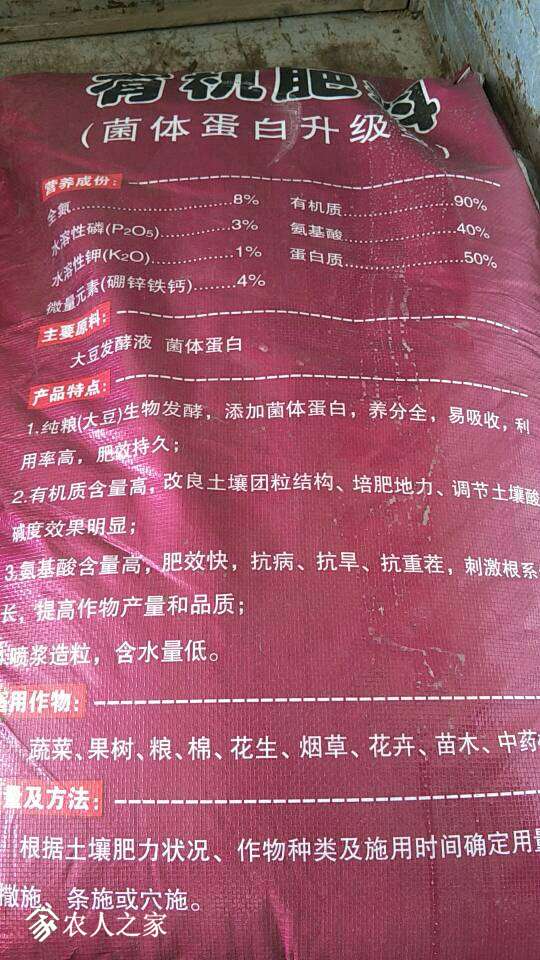 有机肥料
(菌体蛋白升级
营养成份:
全氮 8%
水溶性磷(P₂O₅) 3%
水溶性钾(K₂O) 1%
微量元素(硼锌铁钙) 4%
有机质 90%
氨基酸 40%
蛋白质 50%
主要原料:
大豆发酵液 菌体蛋白
产品特点:
1.纯粮(大豆)生物发酵,添加菌体蛋白,养分全,易吸收,利
用率高,肥效持久;
2.有机质含量高,改良土壤团粒结构、培肥地力、调节土壤酸
碱度效果明显;
3.氨基酸含量高,肥效快,抗病、抗旱、抗重茬,刺激根系
长,提高作物产量和品质;
喷浆造粒,含水量低。
用作物:
蔬菜、果树、粮、棉、花生、烟草、花卉、苗木、中药
量及方法:
根据土壤肥力状况、作物种类及施用时间确定用量
撒施、条施或穴施。
农人之家